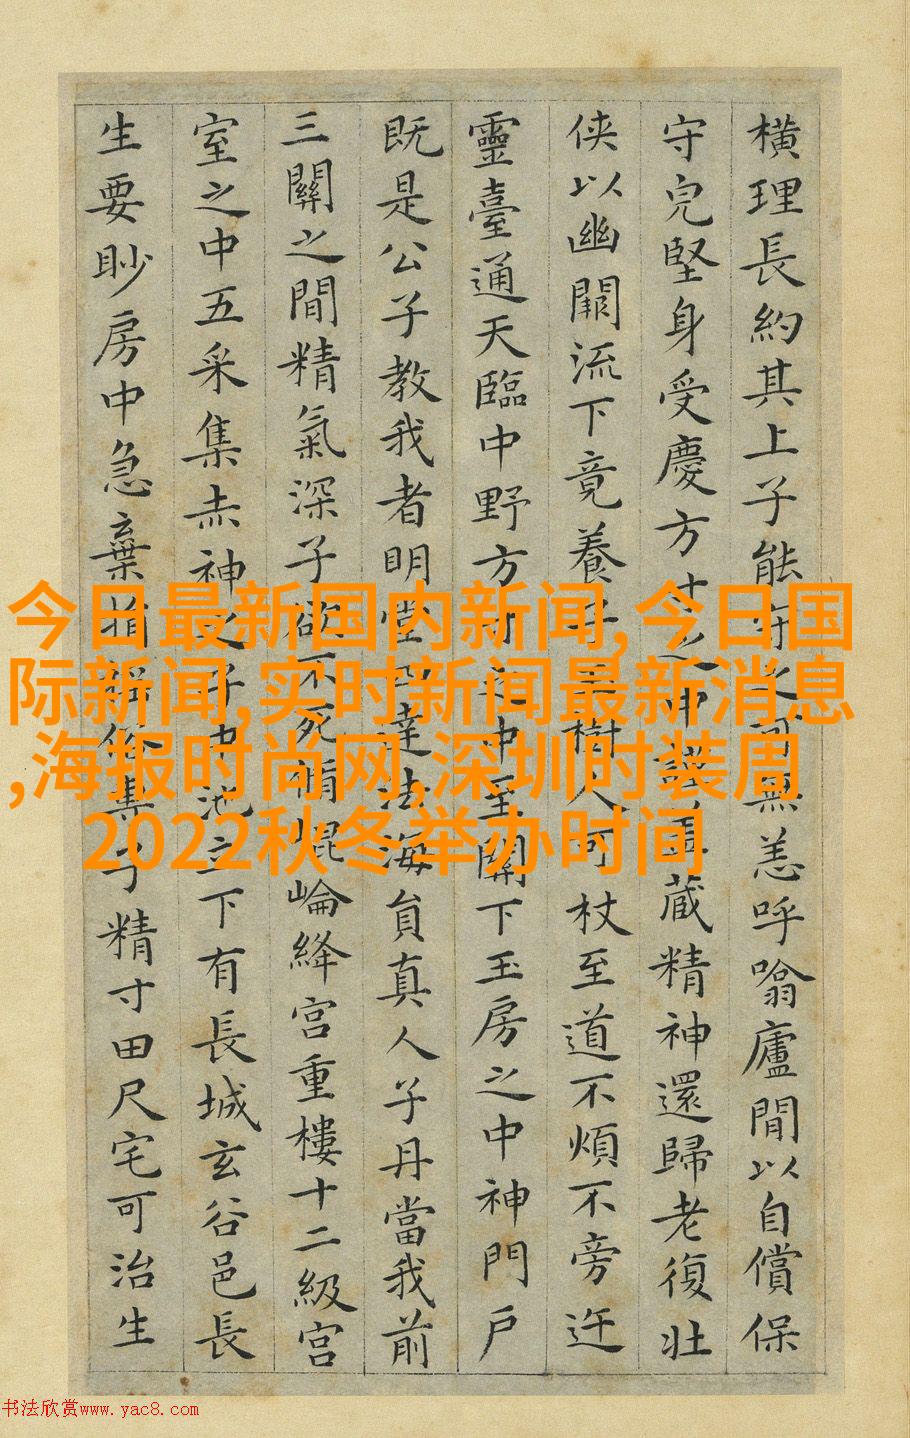 橫理長約其上子能守之可無恙呼噏廬間以自償保
守皃堅身受慶方寸之中謹蓋藏精神還歸老復壯
俠以幽闕流下竟養子玉樹人可杖至道不煩不旁迕
靈臺通天臨中野方寸之中至關下玉房之中神門戶
既是公子教我者明堂四達法海員真人子丹當我前
三關之間精氣深子欲不死脩崐崘絳宮重樓十二級宮
室之中五采集赤神之子中池立下有長城玄谷邑長
生要眇房中急棄捐俗子精寸田尺宅可治生
今日最新国内新闻,今日国
际新闻,实时新闻最新消息
,海报时尚网,深圳时装周
2022秋冬举办时间
书法欣赏www.yac8.com